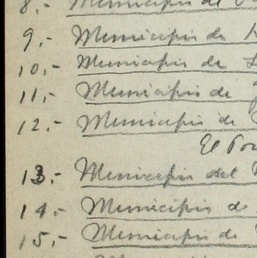 8.- Municipio de
9.- Municipio de
10.- Municipio de
11.- Municipio de
12.- Municipio de
El
13.- Municipio del
14.- Municipio de
15.- Municipio de